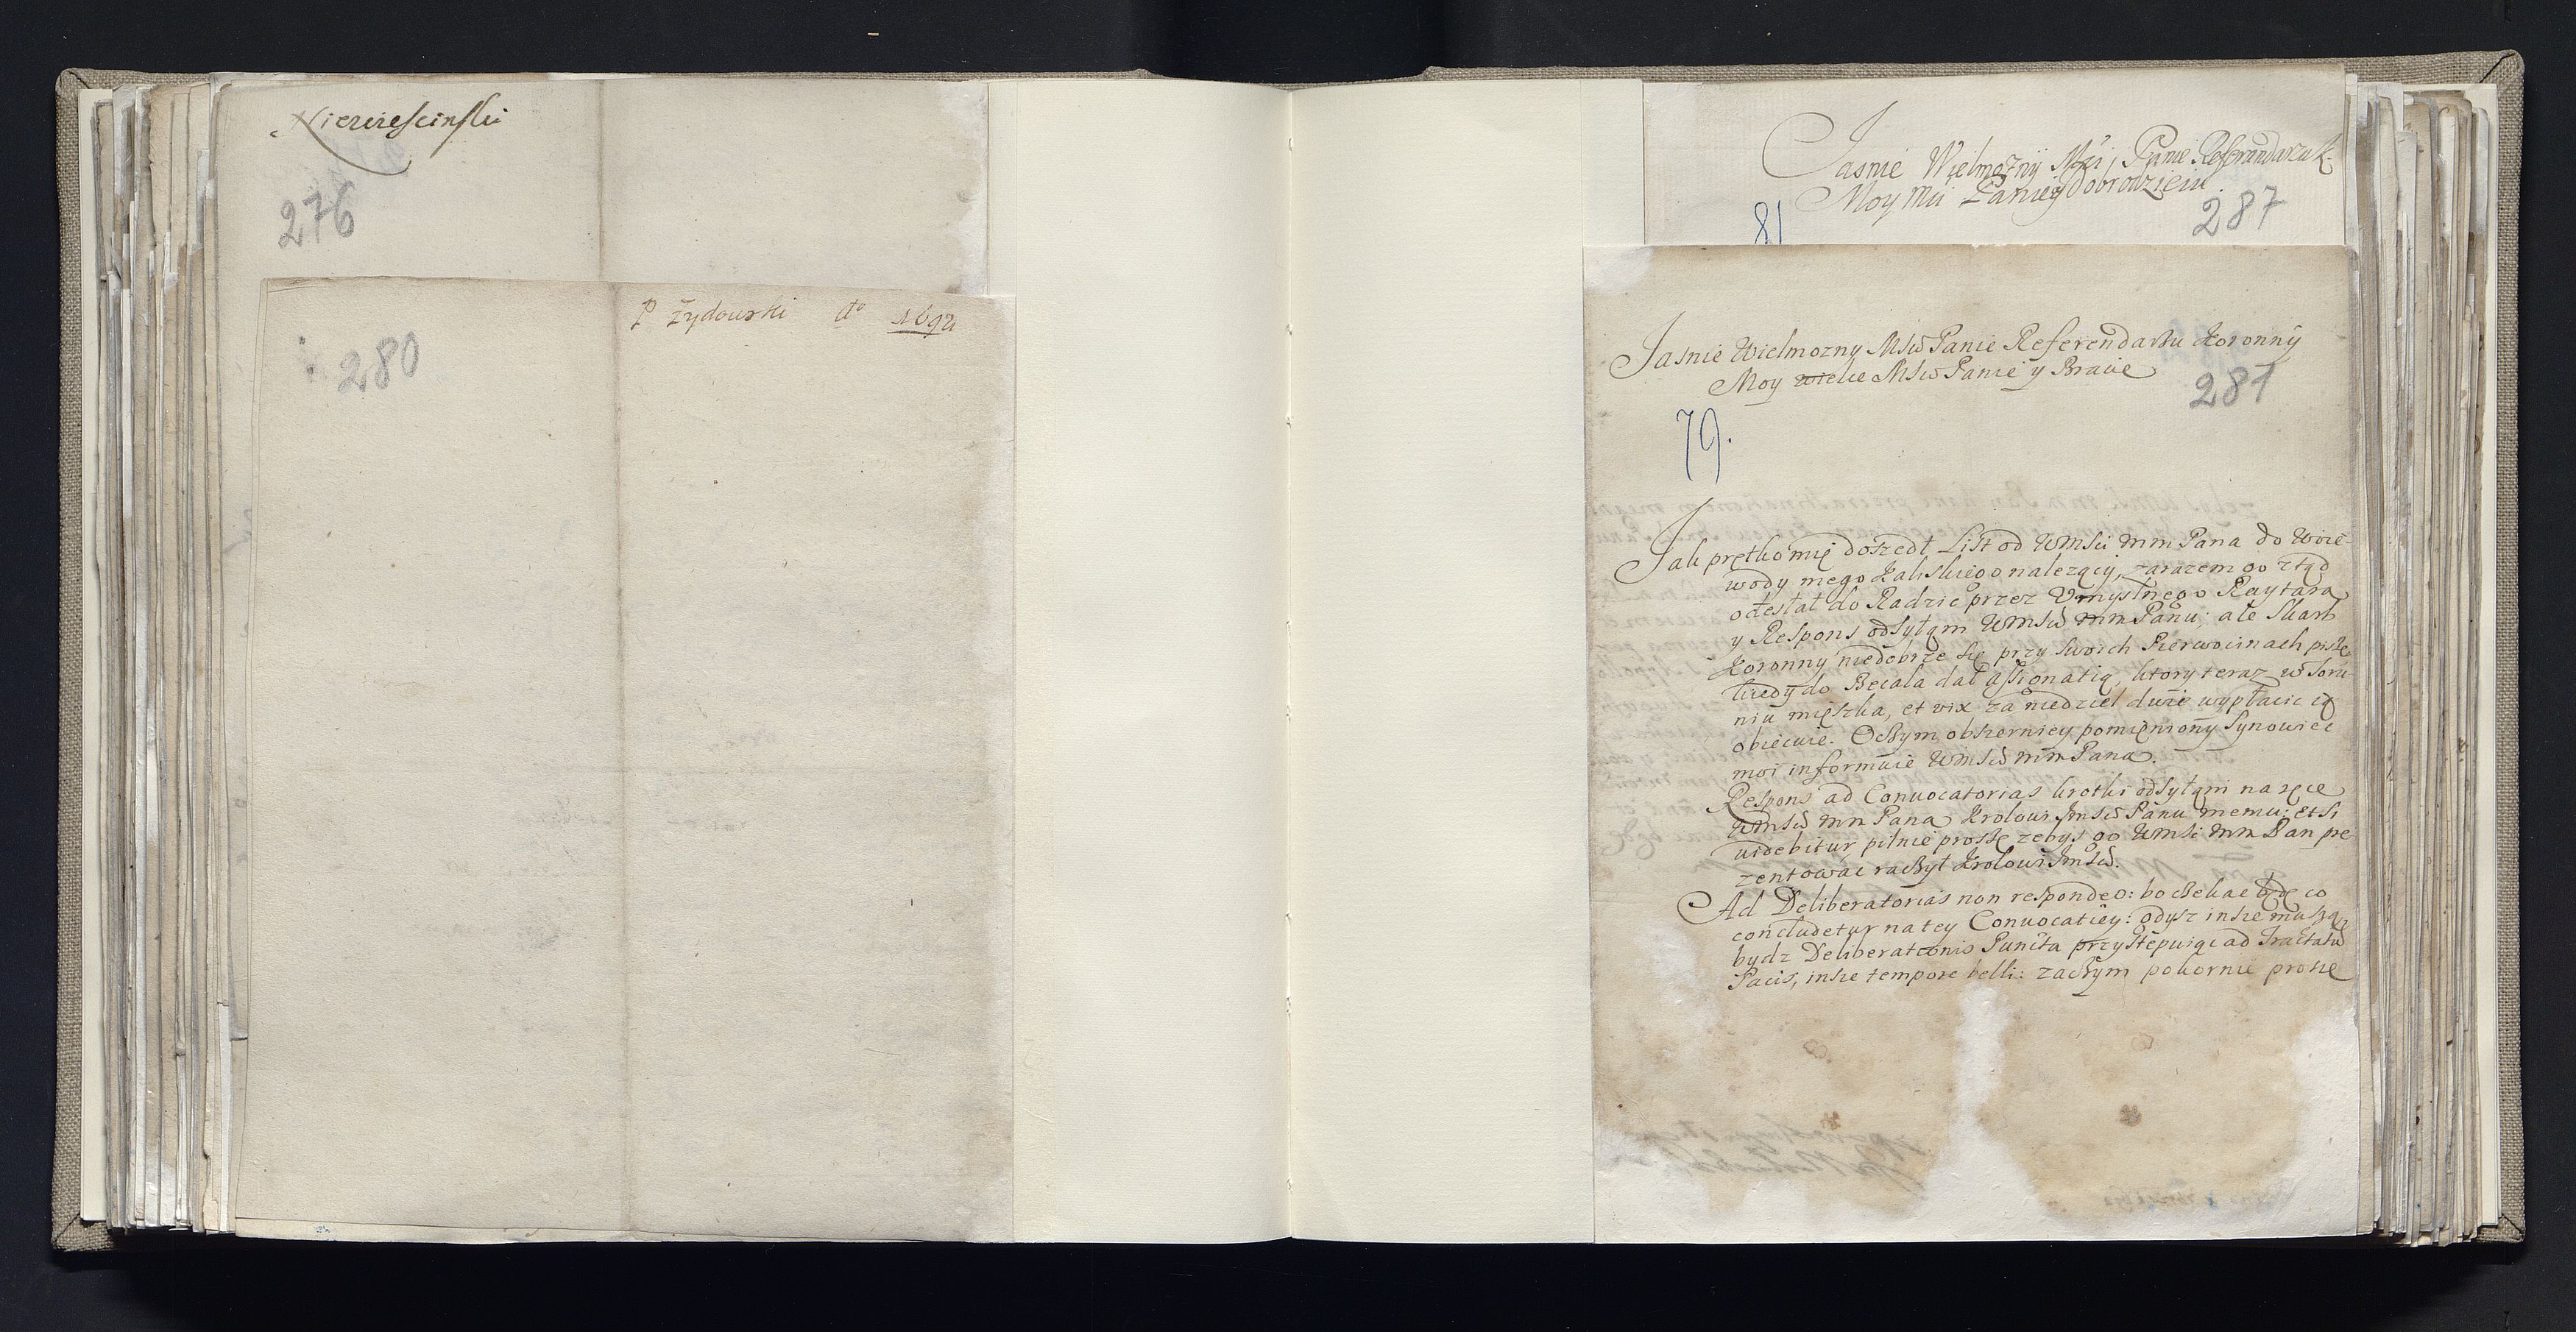 Nieswiescinski
276
280
P Żydowski Aº 1692
Jasnie Wielmożny Mći Panie Referendarzu k.
Moy Mći Panie y Dobrodzieiu
287
81
Jasnie Wielmozny Msćiw Panie Referendarzu Koronny
Moy wielce Msćiw Panie y Bracie
281
79.
Jak prętko mię doszedł List od WMsći mm Pana do Woie-
wody mego Kaliskiego nalezący, zarazem go ztąd
odesłał do Radzic przez Umyslnego Raytara
y Respons odsyłam WMsći mm Panu; ale Skarb
Koronny niedobrze się przy swoich Pierwocinach pisze
kiedy do Becala dał assignatią, ktory teraz w Toru-
niu mięszka, et vix za niedziel dwie wypłacic ią
obiecuie. O czym obszerniey pomięniony Synowiec
moi informuie WMsći mm Pana.
Respons ad Conuocatorias krotki odsyłąm na ręce
WMsći mm Pana Krolowi Jmsći Panu memu; et si
uidebitur pilnie proszę zebys go WMsći mm Pan pre-
zentować raczył Krolowi Jmsći.
Ad Deliberatorias non respondeo: bo czekac będę co
concludetur na tey Conuocatiey: gdysz insze muszą
bydz Deliberationis Puncta przystępuiąc ad Tractatus
Pacis, insze tempore belli: zaczym pokornie proszę